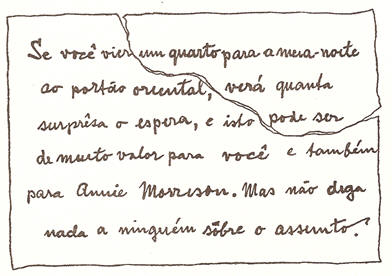 Se você vier um quarto para a meia-noite
ao portão oriental, verá quanta
surprêsa o espera, e isto pode ser
de muito valor para você e também
para Annie Morrison. Mas não diga
nada a ninguém sôbre o assunto.